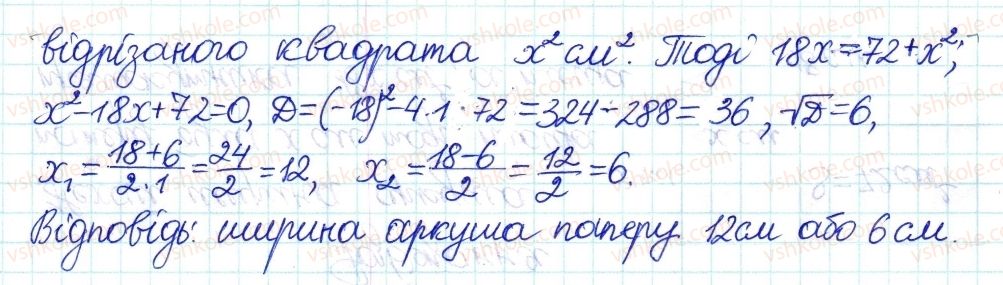 відрізаного квадрата x² см². Тоді 18x=72+x²;
x²-18x+72=0, D=(-18)²-4·1·72=324-288=36, √D=6,
x₁=18+6/2·1=24/2=12, x₂=18-6/2=12/2=6.
Відповідь: ширина аркуша паперу 12см або 6см.